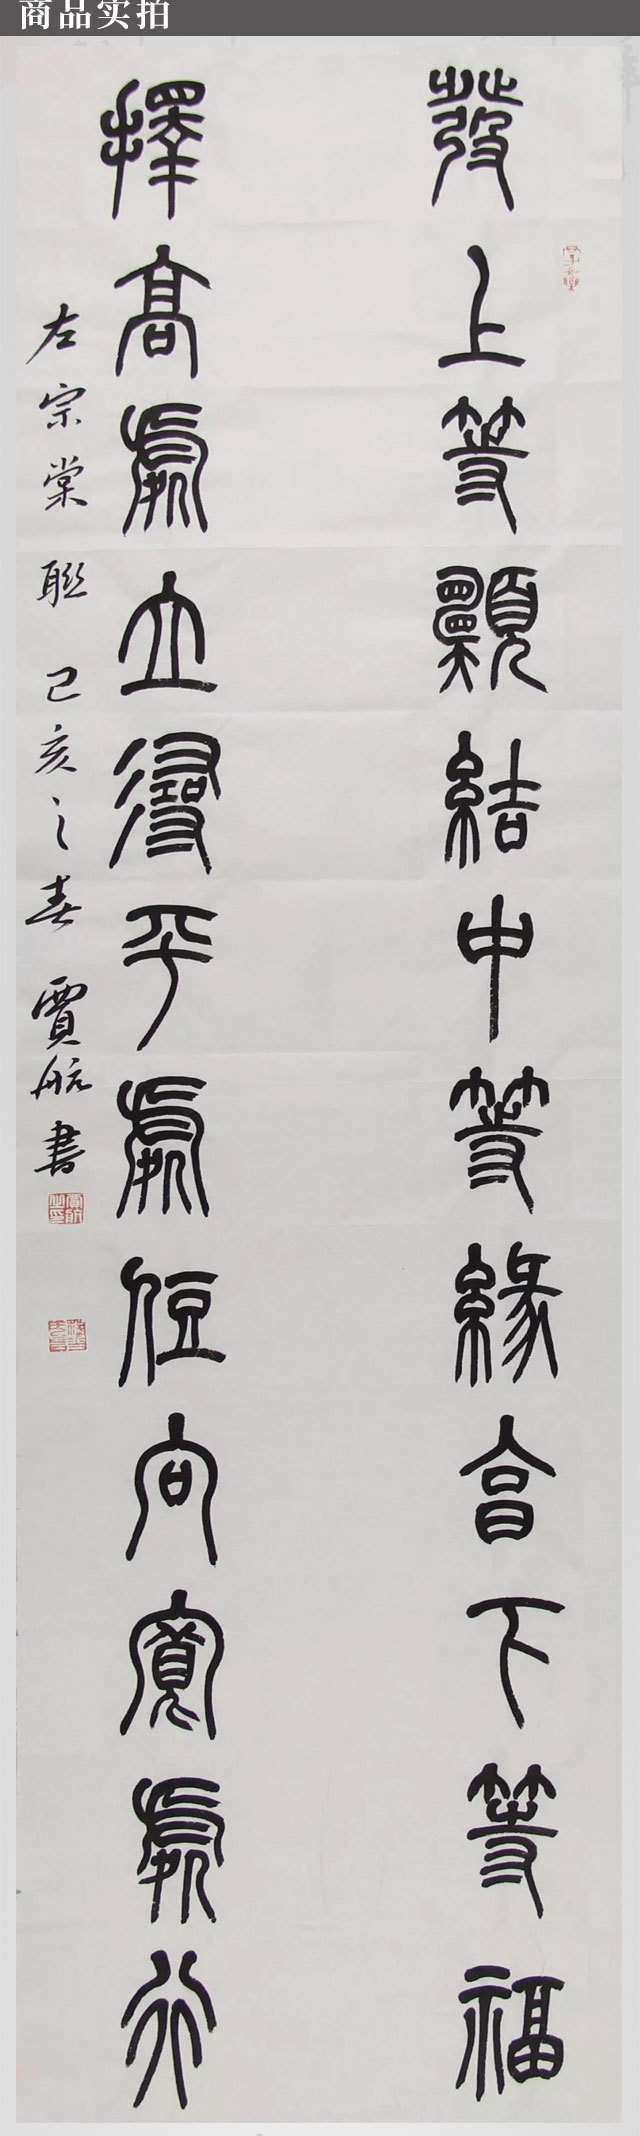 商品实拍
發上等願結中等緣享下等福
擇高處立尋平處住向寬處行
左宗棠聯 己亥之春 賈航書